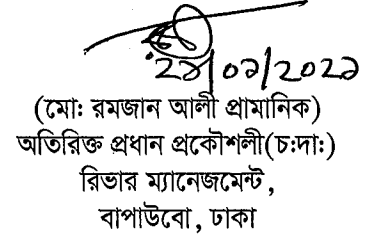 ২১/০১/২০২১
(মো: রমজান আলী প্রামানিক)
অতিরিক্ত প্রধান প্রকৌশলী(চ:দা:)
রিভার ম্যানেজমেন্ট,
বাপাউবো, ঢাকা